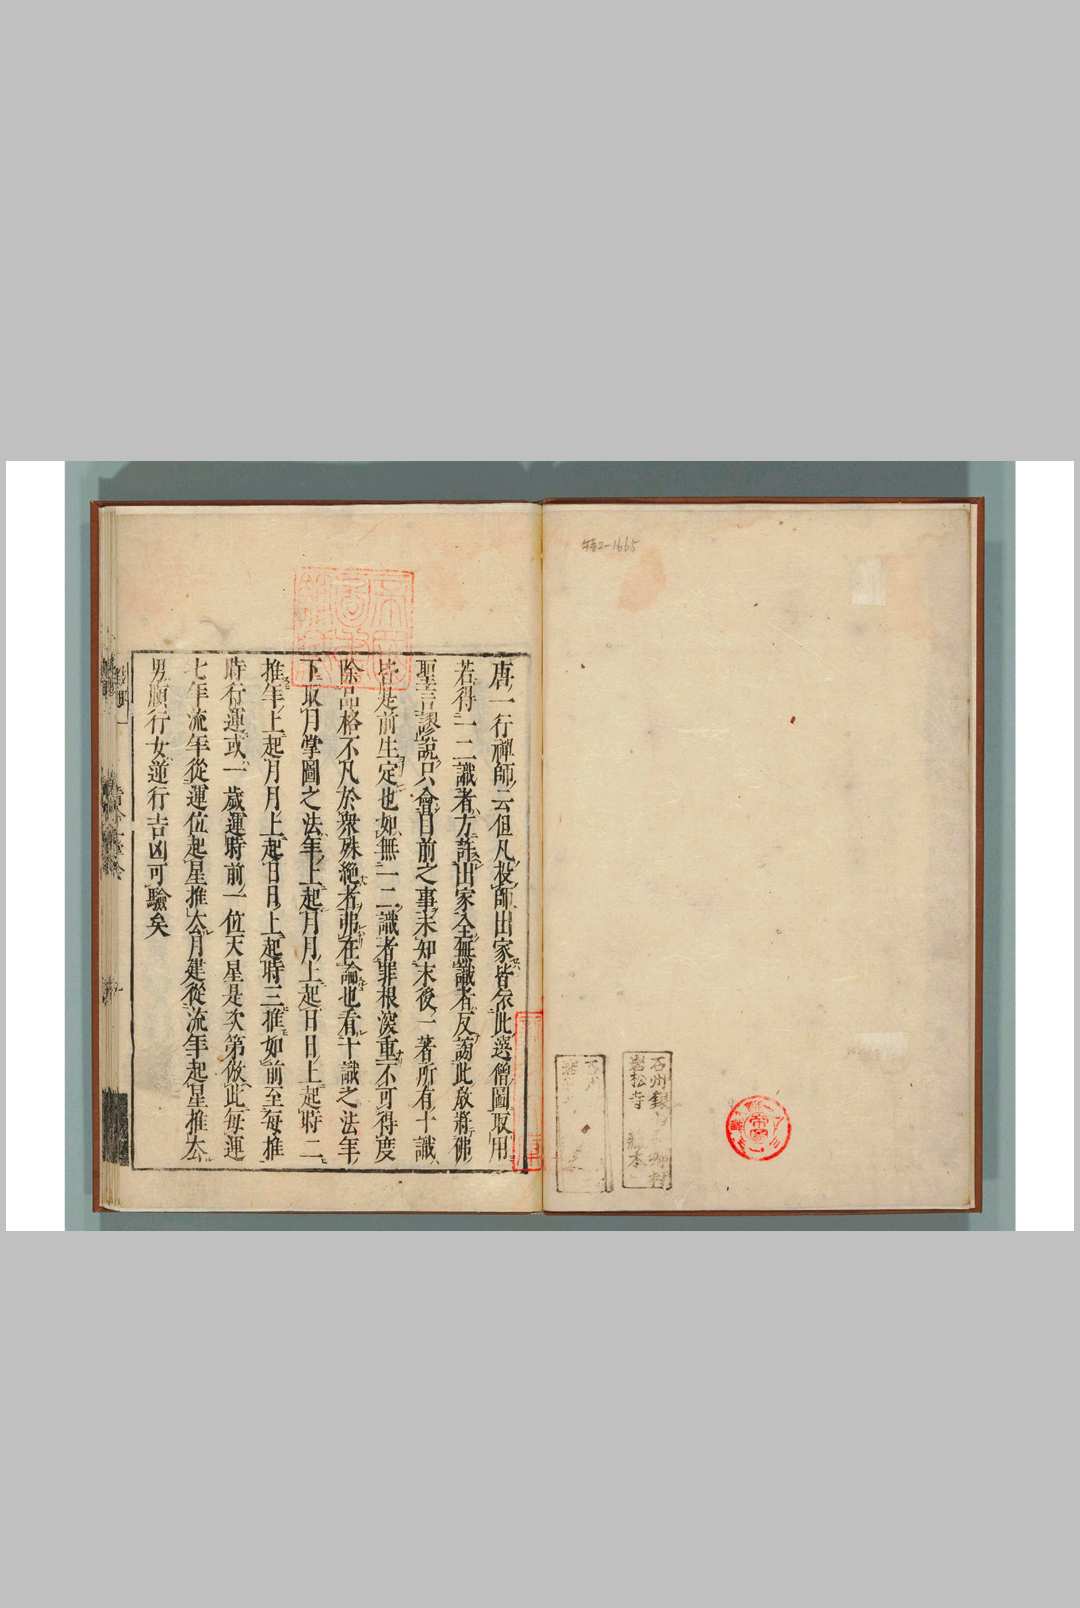 特2-1665
石州銀
唐一行禪師云但凡投師出家皆依此選僧圖取用
若得一二識者方許出家全無識者反謗此教將佛
聖言謬說只會目前之事未知末後一著所有十識
皆是前生定也如無一二識者罪根深重不可得度
除品格不凡於衆殊絶者弗在論也看十識之法年
下取月掌圖之法年上起月月上起日日上起時二
推年上起月月上起日日上起時三推如前至每推
時行運或一歲運時前一位天星是次第倣此每運
七年流年從運位起星推去月建從流年起星推去
男順行女逆行吉凶可驗矣